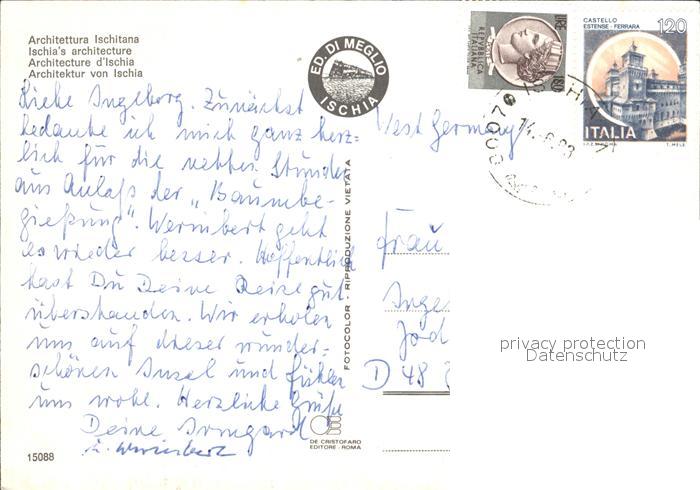 Architettura Ischitana
Ischia's architecture
Architecture d'Ischia
Architektur von Ischia
Liebe Ingeborg. Zunächst
bedanke ich mich ganz herz=
lich für die netten Stunden
aus Anlaß der „Baumbe-
gießung". Wernibert geht
es wieder besser. Hoffentlich
hast Du Deine Reise gut
überstanden. Wir erholen
uns auf dieser wunder-
schönen Insel und fühlen
uns wohl. Herzliche Grüße
Deine Irmgard
u. Wernibert
15088
ED. DI MEGLIO
ISCHIA
FOTOCOLOR - RIPRODUZIONE VIETATA
DE CRISTOFARO
EDITORE - ROMA
REPVBBLICA
ITALIANA
LIRE
CASTELLO
ESTENSE - FERRARA
120
ITALIA
I.P.Z.S. ROMA
T. MELE
80070 ISCHIA
West Germany
Frau
Inge
Jod
D 48
privacy protection
Datenschutz